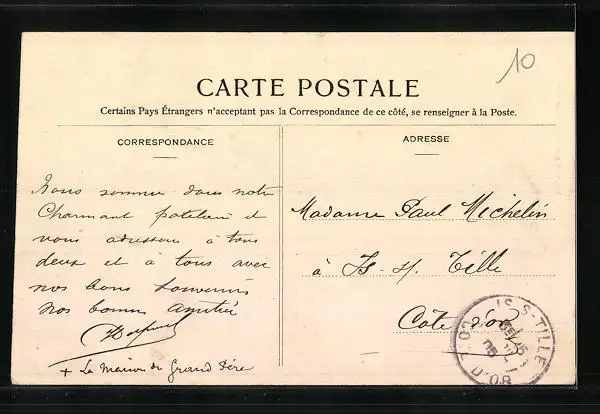 10
CARTE POSTALE
Certains Pays Étrangers n'acceptant pas la Correspondance de ce côté, se renseigner à la Poste.
CORRESPONDANCE
ADRESSE
Nous sommes dans notre
Charmant et
vous adressons à tous
deux et à tous avec
nos bons Souvenirs
Nos bonnes Amitiés
+ La maison du Grand Père
Madame Paul Michelin
à Is-s/. Tille
Côte d'or
IS-S-TILLE
CÔTE D'OR